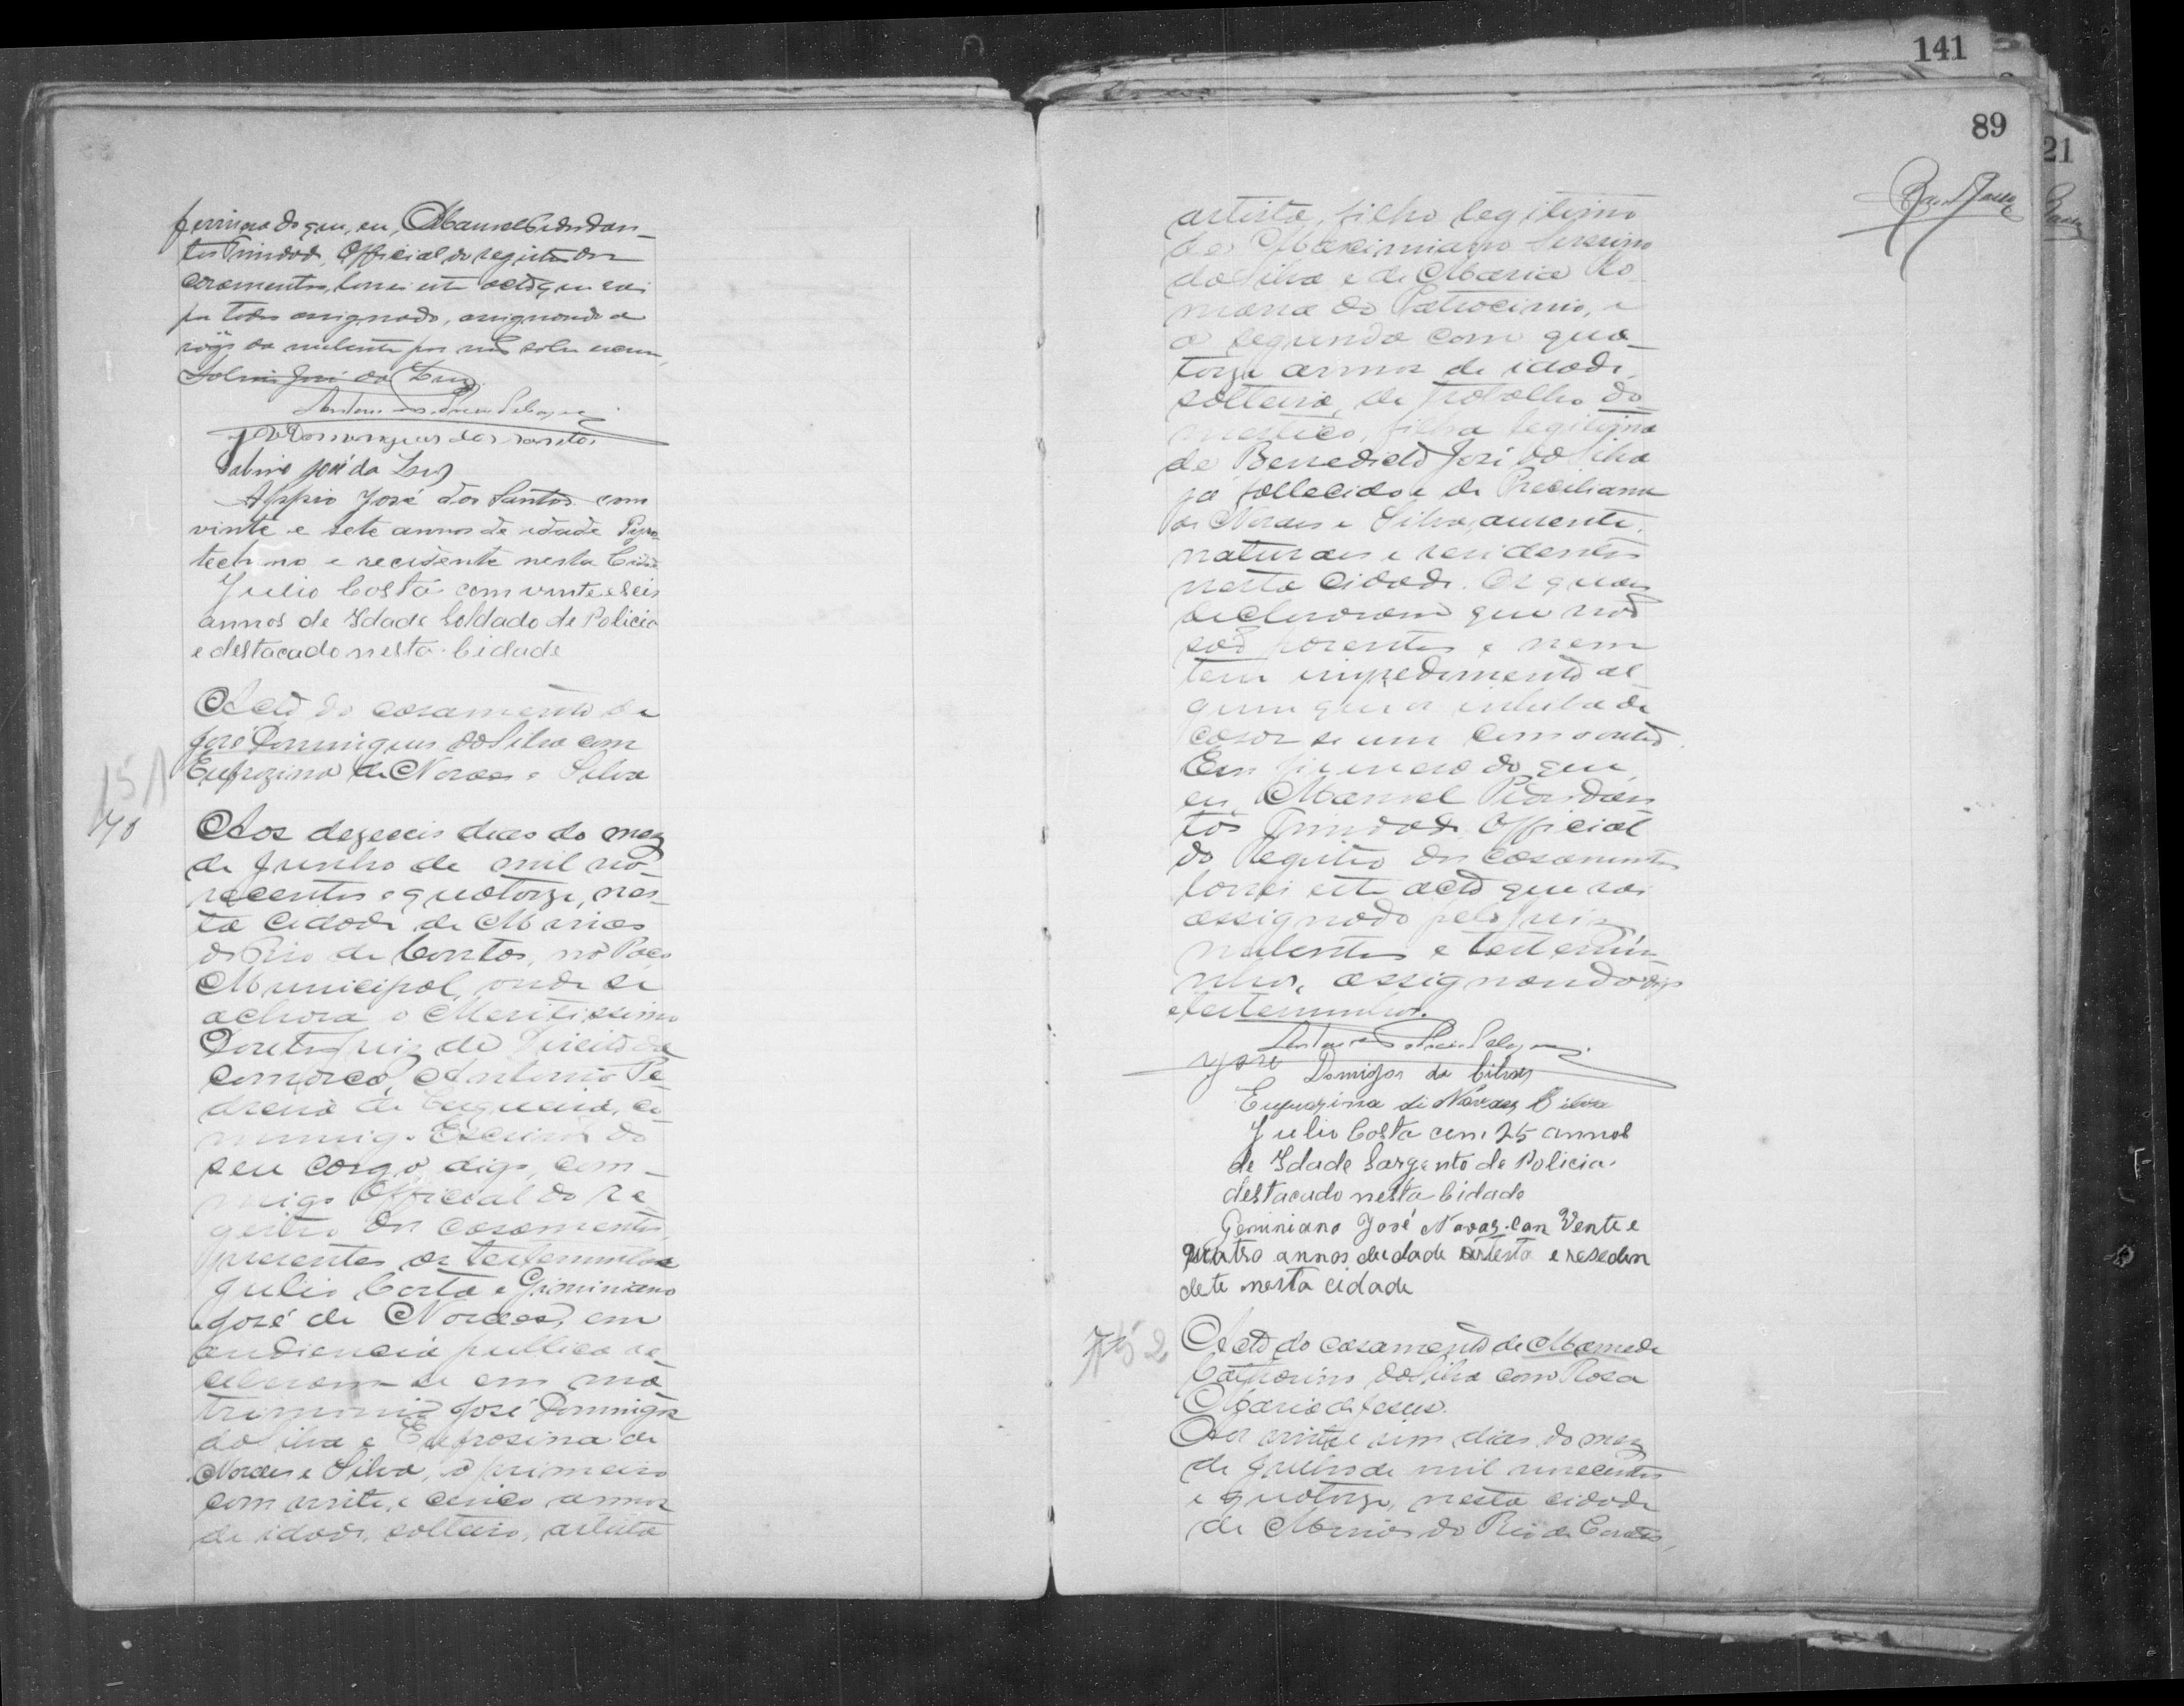 firmeza do que, eu, Manuel Pedro dan-
tas Trindade, Official do registro dos
casamentos, lavrei este acto que vai
por todos assignado, assignando a
rôgo da nubente por não saber escrever
Sabino José da Luz.
Antonio Pedreira Cerqueira
José Domingues dos Santos
Sabino José da Luz
Appio José dos Santos com
vinte e sete annos de idade Pyro-
techino e recidente nesta Cidade
Julio Costa com vinte e seis
annos de Idade Soldado de Policia
e destacado nesta Cidade
Acto do casamento de
José Domingues da Silva com
Eufrozina de Novaes e Silva
151
70
Aos dezeseis dias do mez
de Junho de mil no-
vecentos e quatorze, nes-
ta Cidade de Minas
do Rio de Contas, no Paço
Municipal, onde se
achava o Meritissimo
Doutor Juiz de Direito da
comarca, Antonio Pe-
dreira de Cerqueira, co-
mmigo Escrivão do
seu cargo, digo, com-
migo Official do re-
gistro dos casamentos,
presentes as testemunhas
Julio Costa e Giminiano
José de Novaes, em
audiencia publica re-
ceberam-se em ma-
trimonio José Domingos
da Silva e Eufrosina de
Novaes e Silva, o primeiro
com vinte e cinco annos
de idade, solteiro, artista
141
89
21
artista, filho legitimo
de Maximiano Severino
da Silva e de Maria Ro-
mana do Patrocinio, e
a segunda com qua-
torze annos de idade,
solteira, de trabalho do-
mestico, filha legitima
de Benedicto José da Silva
já fallecido e de Preciliana
de Novaes e Silva, ausente,
naturaes e residentes
nesta cidade. Os quaes
declararam que não
são parentes e nem
tem impedimento al-
gum que os inhiba de
casar-se um com o outro.
Em firmeza do que,
eu, Manuel Pedro dan-
tas Trindade, Official
do Registro dos casamentos
lavrei este acto que vai
assignado pelo Juiz,
nubentes e testemu-
nhas, assignando digo
e testemunhas.
Antonio Pedreira Cerqueira
José Domigos da Cilva
Eufrozina di Novaes Silva
Julio Costa com 25 annos
de Idade Sargento de Policia.
destacado nesta Cidade
Geminiano José Novaz. con Vente e
quatro annos de idade artesta e reseden
dete nesta cidade
152
Acto do casamento de Mamede
Catharino da Silva com Rosa
Maria de Jesus.
Aos vinte e um dias do mez
de Julho de mil novecentos
e quatorze, nesta cidade
de Minas do Rio de Contas,